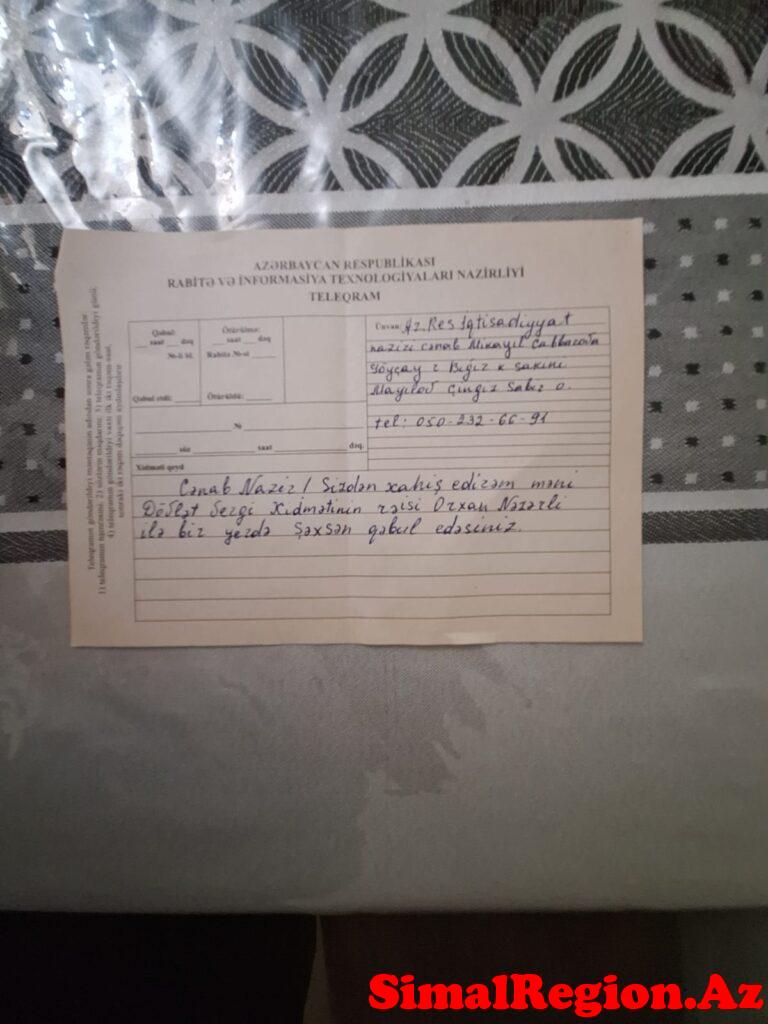 AZƏRBAYCAN RESPUBLİKASI
RABİTƏ VƏ İNFORMASİYA TEXNOLOGİYALARI NAZİRLİYİ
TELEQRAM
Qəbul:
saat dəq
№-li bl.
Qəbul etdi:
Ötürülmə:
saat dəq
Rabitə №-si
Ötürüldü:
№
söz saat dəq.
Xidməti qeyd
Ünvan: Az. Res İqtisadiyyat
naziri cənab Mikayıl Cabbarova
Göyçay r Bığır k sakini
Mayılov Çingiz Sabir o.
tel: 050-232-66-91
Cənab Nazir! Sizdən xahiş edirəm məni
Dövlət Vergi Xidmətinin rəisi Orxan Nəzərli
ilə bir yerdə Şəxsən qəbul edəsiniz.
SimalRegion.Az